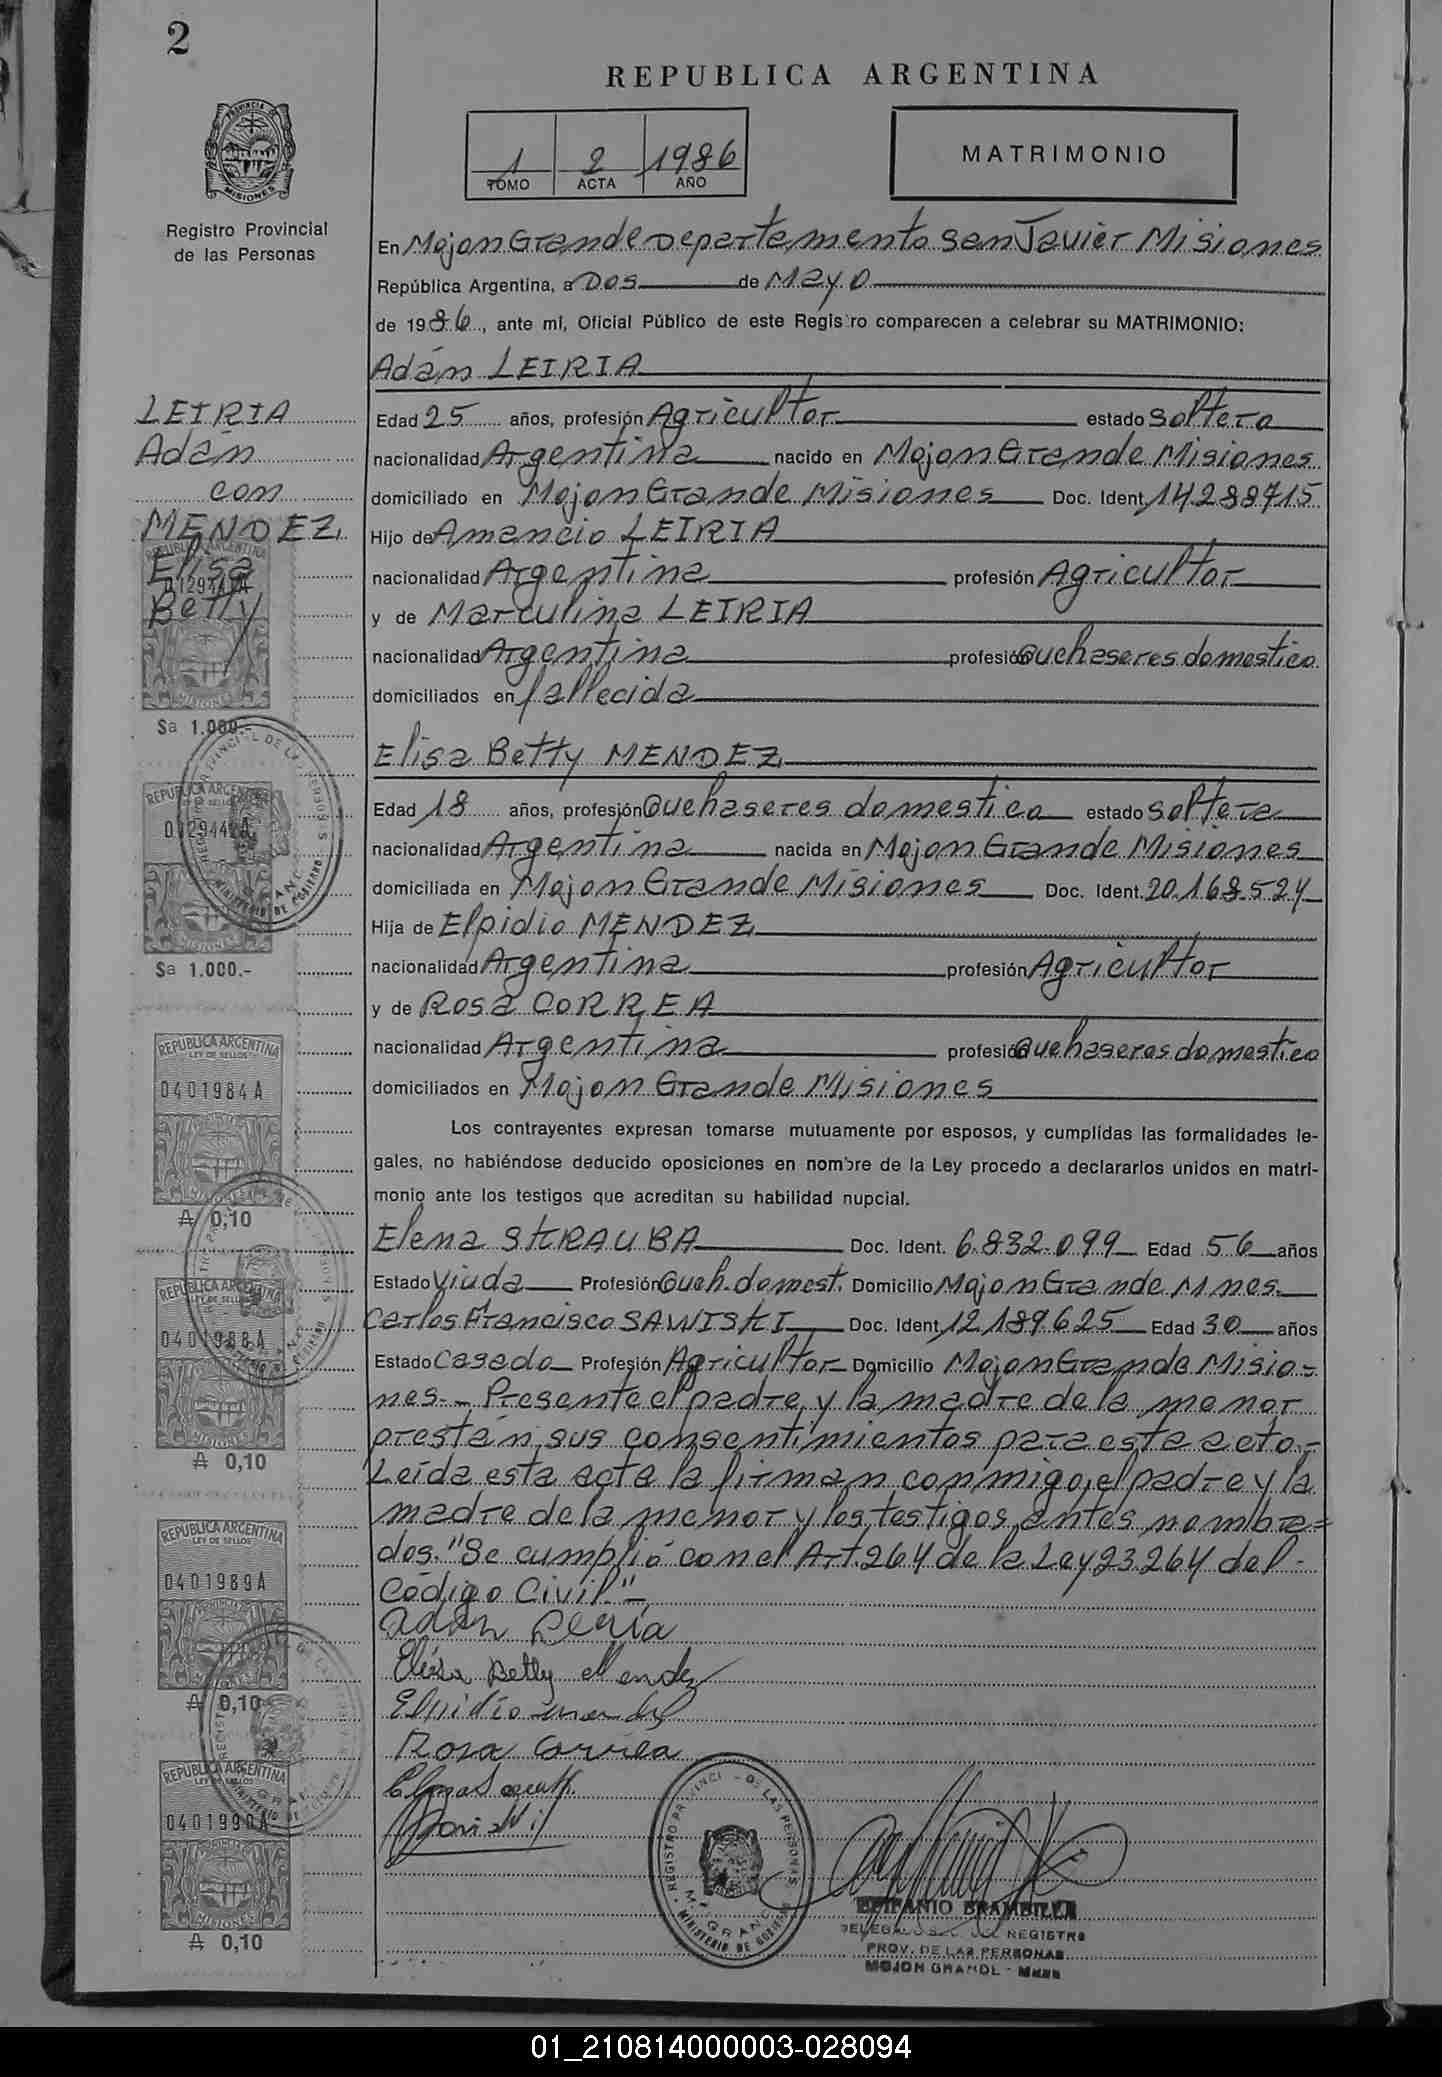 2
REPUBLICA ARGENTINA
1 2 1986
TOMO ACTA AÑO
MATRIMONIO
PROVINCIA DE
MISIONES
Registro Provincial
de las Personas
En Mojon Grande Departamento San Javier Misiones
República Argentina, a Dos de Mayo
de 1986, ante mí, Oficial Público de este Registro comparecen a celebrar su MATRIMONIO:
Adán LEIRIA
LEIRIA
Adán
con
MENDEZ
Elisa
Betty
Edad 25 años, profesión Agricultor estado soltero
nacionalidad Argentina nacido en Mojon Grande Misiones
domiciliado en Mojon Grande Misiones Doc. Ident. 14288715
Hijo de Amancio LEIRIA
nacionalidad Argentina profesión Agricultor
y de Marculina LEIRIA
nacionalidad Argentina profesión Quehaseres domestico
domiciliados en fallecida
Elisa Betty MENDEZ
Edad 18 años, profesión Quehaseres domestico estado soltera
nacionalidad Argentina nacida en Mojon Grande Misiones
domiciliada en Mojon Grande Misiones Doc. Ident. 20.168.524
Hija de Elpidio MENDEZ
nacionalidad Argentina profesión Agricultor
y de Rosa CORREA
nacionalidad Argentina profesión Quehaseres domestico
domiciliados en Mojon Grande Misiones
Los contrayentes expresan tomarse mutuamente por esposos, y cumplidas las formalidades le-
gales, no habiéndose deducido oposiciones en nombre de la Ley procedo a declararlos unidos en matri-
monio ante los testigos que acreditan su habilidad nupcial.
Elena SKRAUBA Doc. Ident. 6.832.099 Edad 56 años
Estado Viuda Profesión Queh. domest. Domicilio Mojon Grande Mnes.
Carlos Francisco SAWISKI Doc. Ident. 12.189.625 Edad 30 años
Estado Casado Profesión Agricultor Domicilio Mojon Grande Misio-
nes.- Presente el padre y la madre de la menor
prestán sus consentimientos para esta acto.-
Leída esta acta la firman conmigo, el padre y la
madre de la menor y los testigos antes nombra=
dos. "Se cumplió con el Art. 264 de la Ley 23.264 del
Código Civil".-
Adán Leiria
Elisa Betty Mendez
Elpidio Mendez
Rosa Correa
REPUBLICA ARGENTINA
MISIONES
Sa 1.000.-
REPUBLICA ARGENTINA
MISIONES
Sa 1.000.-
REPUBLICA ARGENTINA
LEY DE SELLOS
0401984A
MISIONES
₳ 0,10
REPUBLICA ARGENTINA
LEY DE SELLOS
0401988A
MISIONES
₳ 0,10
REPUBLICA ARGENTINA
LEY DE SELLOS
0401989A
₳ 0,10
REPUBLICA ARGENTINA
LEY DE SELLOS
0401990A
MISIONES
₳ 0,10
REGISTRO PROVINCIAL DE LAS PERSONAS
MINISTERIO DE GOBIERNO
EPIFANIO
REGISTRO
PROV. DE LAS PERSONAS
MOJON GRANDE - Mnes
01_210814000003-028094